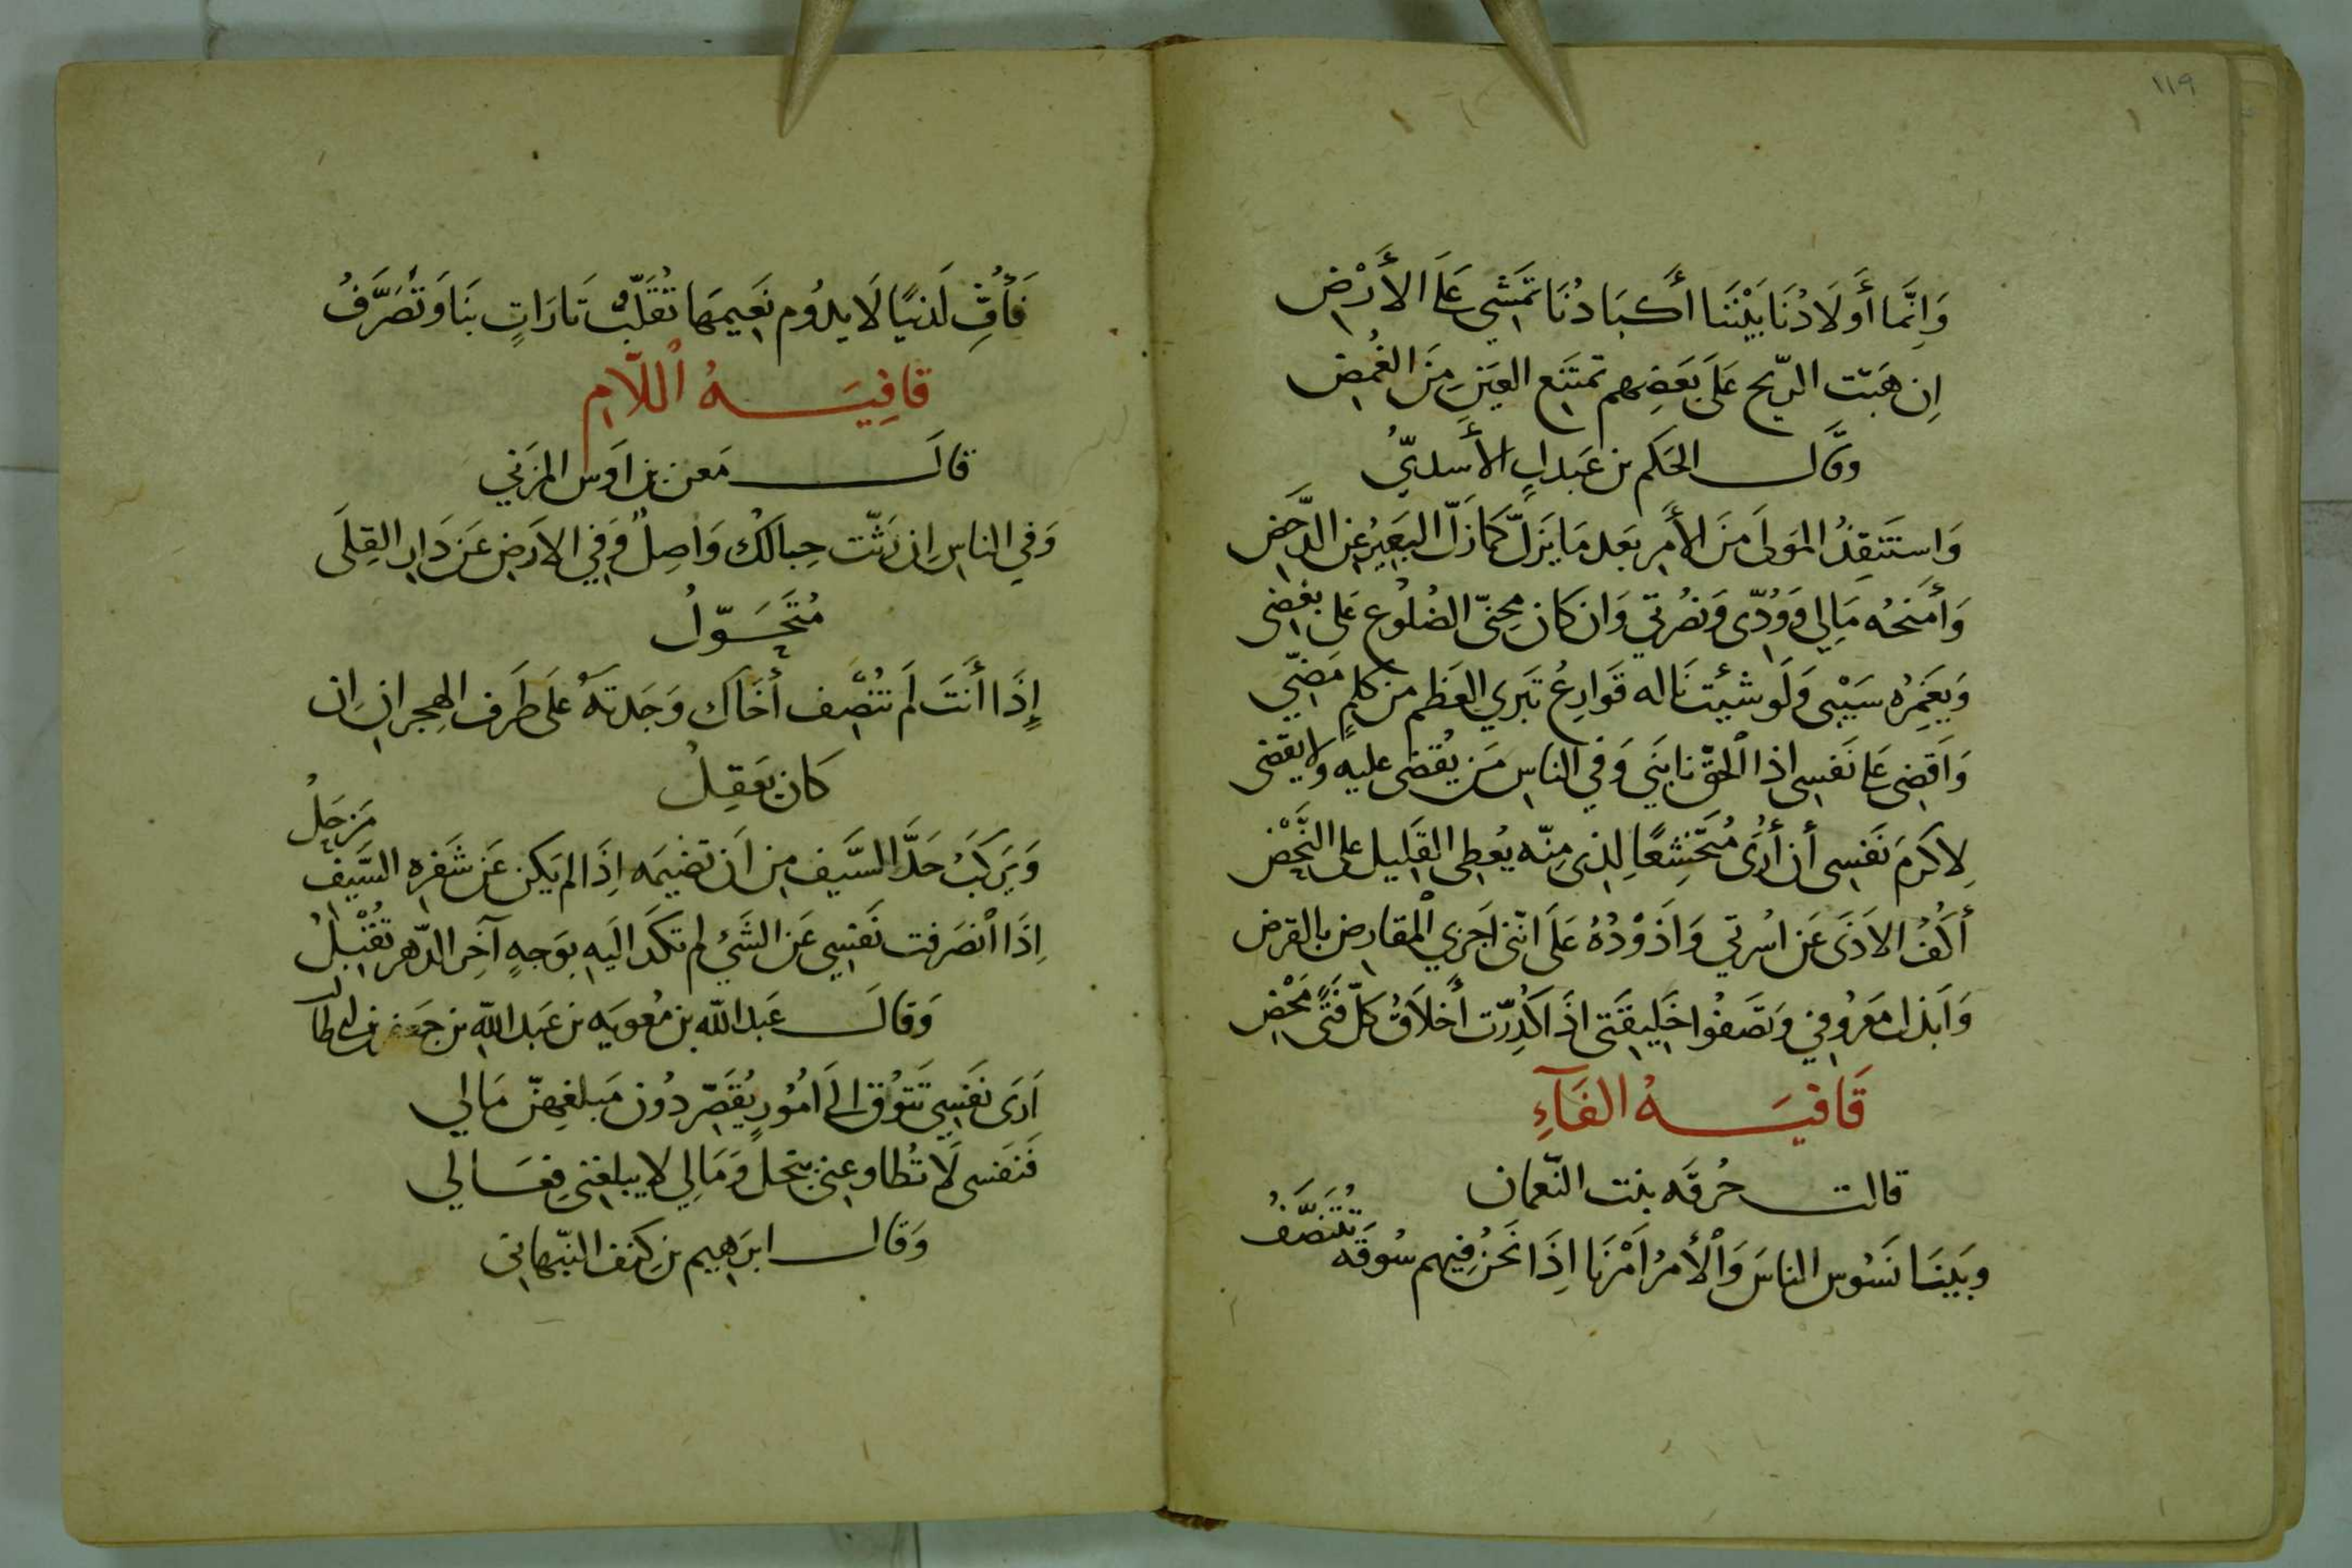 ١١٩
وَاِنَّمَا أَولَادُنَا بَيْنَنَا أَكبَادُنَا تَمشي عَلَى الأَرْضِ
اِن هَبَّت الريّح عَلَى بَعَضِهم تمتَنع العَين مِنَ الغُمضِ
وقَال الحَكم بن عَبدلٍ الأَسديّ
وَاستَنقِذُ المَولَى مِنَ الأَمرِ بَعد مَا يَزلّ كَمَا زَلّ البَعَيرُ عَن الدَّحَضِ
وَأَمنَحُه مَالِي وَوُدّى وَنصُرتي وَان كَان مِحنيّ الضُلُوع عَلى بغضى
وَيَغمِرُه سَيْبى وَلَو شئِت نَاله قَوَارِعُ تَبَري العَظم من كَلمٍ مَضّي
وَاَقضِى عَلى نَفسِى اذا الحقّ نابَني وَفي الناسِ مَن يُقضَى عليه وَلا يقضى
لِاكرمَ نَفسِى أن أُرَى مُتَخشِعًا لِذى مِنّه يعُطِى القَليل على النَّحْضِ
أَكُفُ الاَذَى عَن اسُرتي وَاَذوْدُهُ عَلَى انّنى اَجزي المقارِض بالقرض
وَاَبذل مَعرُوفي وَتَصفُوا خَليقَتى اذَا كدِّرّت أَخلَاقُ كلّ فتًى مَحْضِ
قَافيَـــةُ الفَآءِ
قالت حُرقَه بنت النّعمان
وبَينَا نَسُوس الناسَ وَالأَمرُ اَمْرَنا اِذَا نَحنُ فِيهم سُوقَه تُتَنَصَّفُ
فَأُفّ لَدنيًا لَا يدوُم نعَيمهَا تُقَلَّبُ تَارَاتٍ بنَا وَتُصَرَّفُ
قافِيَـــةُ اللّامِ
قالَ مَعن بن اَوس المزَني
وَفي الناسِ اِن رَثّت حِبالَكُ وَاصِلٌ وَفي الاَرضِ عَن دَارِ القِلَى
مُتَحَـوّلُ
إِذَا أَنتَ لَم تُنصِف أَخَاك وَجَدتَهُ عَلَى طَرَف الهِجرانِ اِن
كَان يَعقِلُ
وَيَركَبُ حَدَّ السَّيف مِن اَن تضَيمَه اِذَا لم يَكن عَن شَفرة السَّيف مَزحَلُ
اِذَا انصَرفت نَفسِي عَن الشَئ لم تكَد اليَه بِوَجهٍ آخِر الدّهر تقُبْلُ
وَقالَ عَبد الله بن مُعويَه بن عَبد الله بن جعفر بن ابى طالب
اَرَى نَفَسِي تَتوُق الَى امُوُرٍ يُقَصّر دُون مَبلغهِنّ مَالي
فَنفسى لَا تُطاوعِني ببخل وَمَالي لا يبلغنى فِعَالي
وَقال ابرَهيم بن كنف النبّهانى